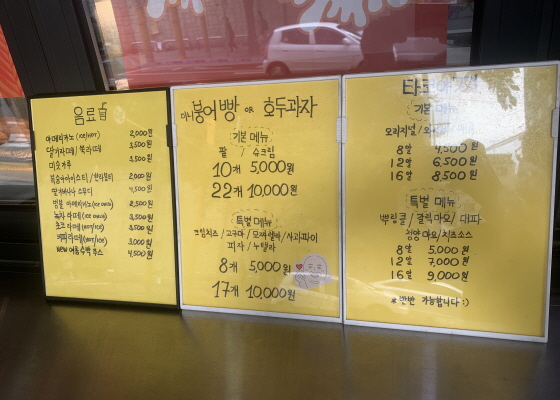 음료
아메리카노 (ICE/HOT) 2,000원
딸기라떼/ 쑥라떼 3,500원
미숫가루 3,500원
복숭아아이스티/ 한라봉티 2,000원
딸기바나나 스무디 4,500원
벌꿀 아메리카노(ICE ONLY) 2,500원
녹차 라떼(ICE ONLY) 3,500원
초코 라떼(HOT/ICE) 3,500원
카페라떼(HOT/ICE) 3,000원
NEW 여름수박 주스 4,500원
미니 붕어빵 OR 호두과자
기본 메뉴
팥 / 슈크림
10개 5,000원
22개 10,000원
특별 메뉴
크림치즈/고구마/모짜렐라/사과파이
피자/누텔라
8개 5,000원
17개 10,000원
기본 메뉴
오리지널/
8알 4,500원
12알 6,500원
16알 8,500원
특별 메뉴
뿌링클/갈릭마요/대파
청양마요/치즈소스
8알 5,000원
12알 7,000원
16알 9,000원
*반반 가능합니다 :)